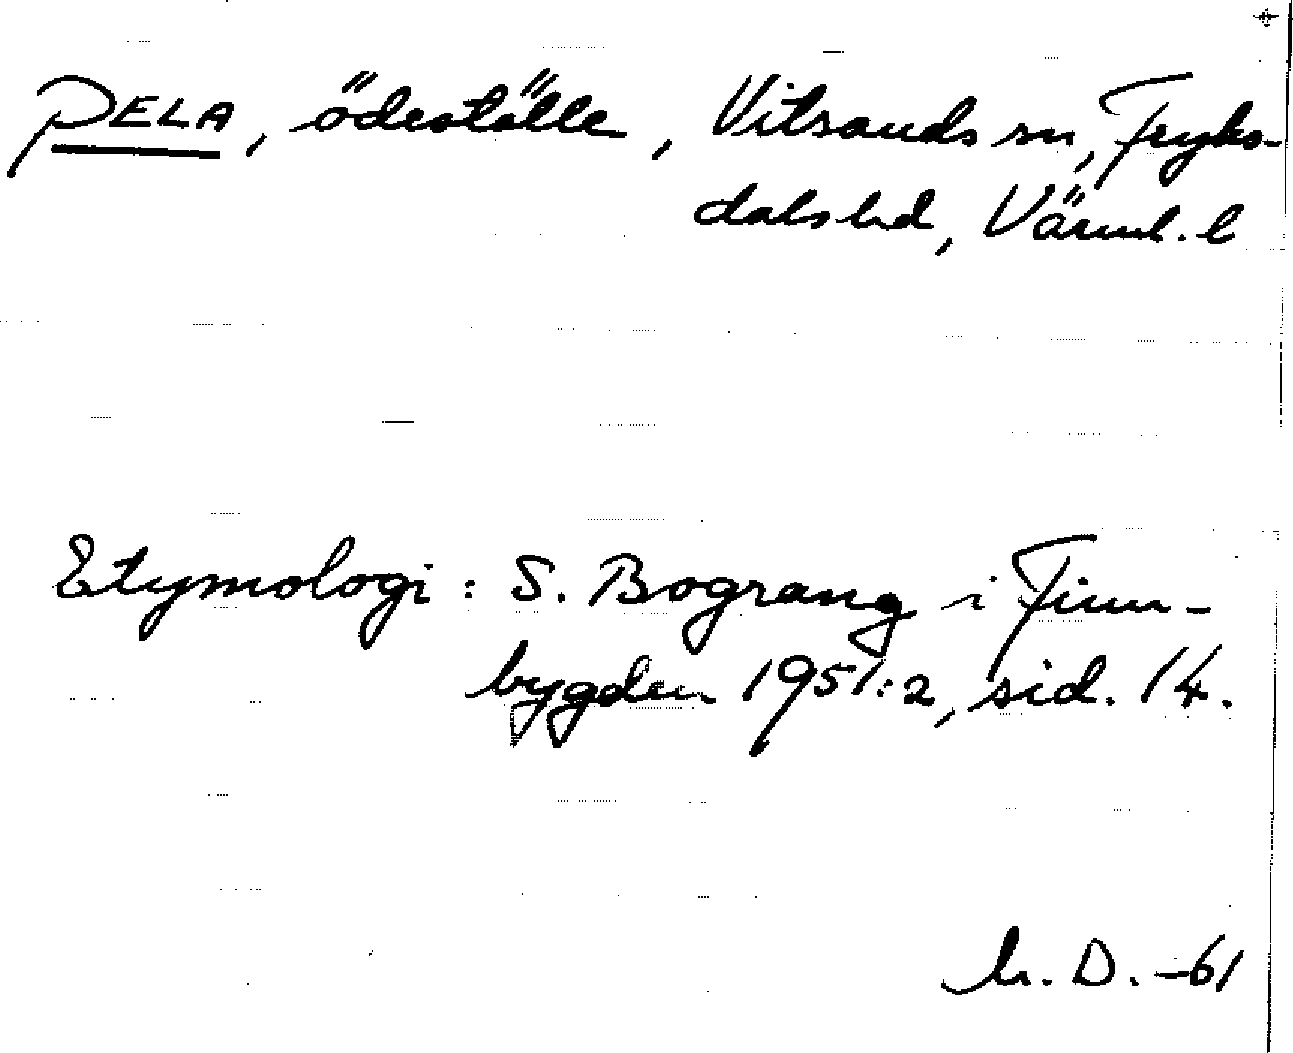 PELA, ödeställe, Vitsands sn, Fryks-
dals hd, Värml. l
Etymologi: S. Bograng i Finn-
bygden 1951:2, sid. 14.
D. -61